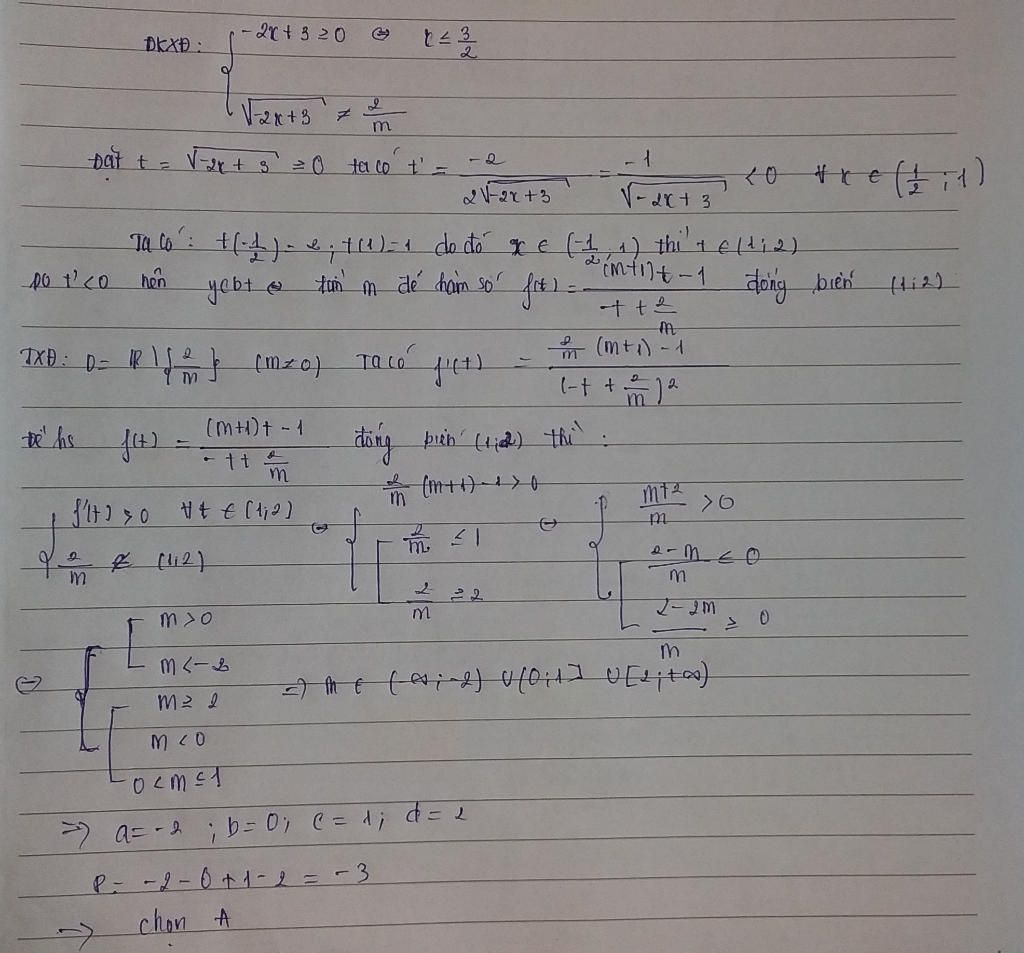 ĐKXĐ: { -2x + 3 ≥ 0 ⇔ x ≤ 3/2
√(-2x+3) ≠ 2/m
Đặt t = √(-2x+3) ≥ 0 ta có t' = -2/(2√(-2x+3)) = -1/√(-2x+3) < 0 ∀x ∈ (1/2; 1)
Ta có: t(-1/2) = 2; t(1) = 1 do đó x ∈ (-1/2; 1) thì t ∈ (1; 2)
Do t' < 0 nên ycbt ⇔ tìm m để hàm số f(t) = ((m+1)t - 1)/(-t + 2/m) đồng biến (1; 2)
TXĐ: D = R \ {2/m} (m≠0) Ta có f'(t) = (2/m (m+1) - 1)/(-t + 2/m)²
Để hs f(t) = ((m+1)t - 1)/(-t + 2/m) đồng biến (1;2) thì:
{ f'(t) > 0 ∀t ∈ (1;2) ⇔ { 2/m (m+1) - 1 > 0 ⇔ { (m+2)/m > 0
2/m ∉ (1;2) [ 2/m ≤ 1 [ (2-m)/m ≤ 0
2/m ≥ 2 (2-2m)/m ≥ 0
⇔ { [ m > 0
m < -2
[ m ≥ 2 ⇒ m ∈ (-∞; -2) ∪ (0; 1] ∪ [2; +∞)
m < 0
0 < m ≤ 1
⇒ a = -2; b = 0; c = 1; d = 2
P = -2 - 0 + 1 - 2 = -3
⇒ chọn A